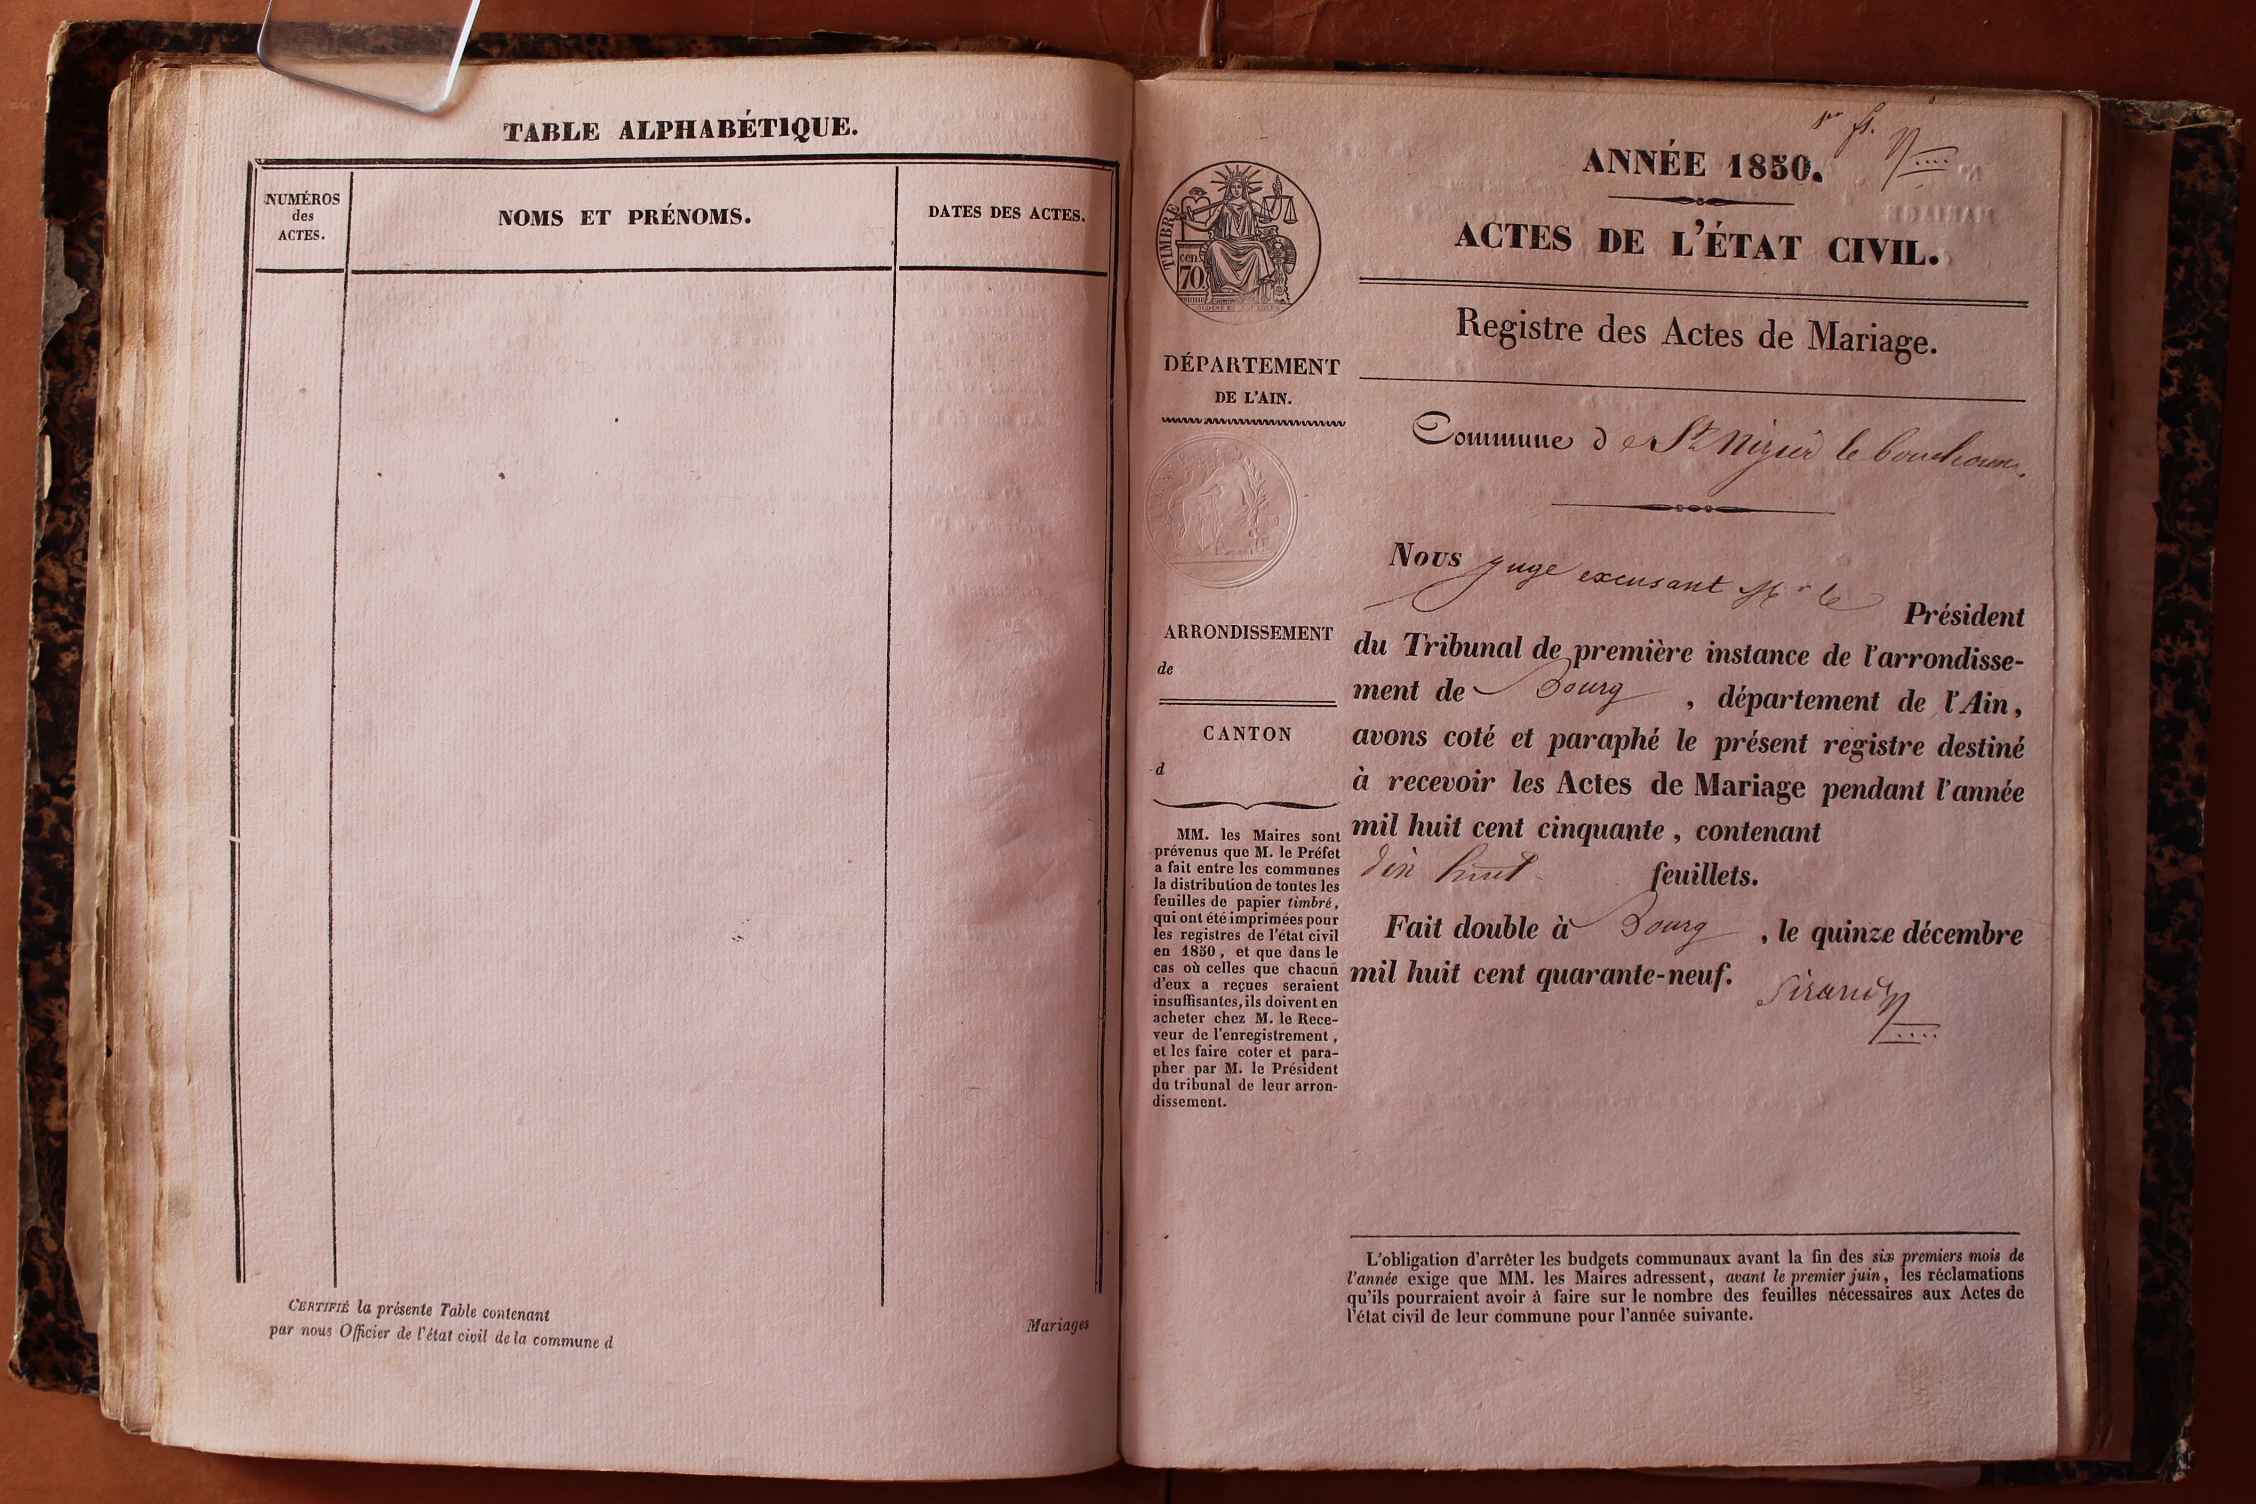 TABLE ALPHABÉTIQUE.
NUMÉROS
des
ACTES.
NOMS ET PRÉNOMS.
DATES DES ACTES.
CERTIFIÉ la présente Table contenant
Mariages
par nous Officier de l'état civil de la commune d
1er f.
ANNÉE 1850.
ACTES DE L'ÉTAT CIVIL.
Registre des Actes de Mariage.
TIMBRE
cen.
70
DÉPARTEMENT
DE L'AIN.
ARRONDISSEMENT
de
CANTON
d
MM. les Maires sont
prévenus que M. le Préfet
a fait entre les communes
la distribution de toutes les
feuilles de papier timbré,
qui ont été imprimées pour
les registres de l'état civil
en 1850, et que dans le
cas où celles que chacun
d'eux a reçues seraient
insuffisantes, ils doivent en
acheter chez M. le Rece-
veur de l'enregistrement,
et les faire coter et para-
pher par M. le Président
du tribunal de leur arron-
dissement.
Commune de St Nizier le bouchoux.
Nous juge excusant Mr le Président
du Tribunal de première instance de l'arrondisse-
ment de Bourg, département de l'Ain,
avons coté et paraphé le présent registre destiné
à recevoir les Actes de Mariage pendant l'année
mil huit cent cinquante, contenant
dix huit feuillets.
Fait double à Bourg, le quinze décembre
mil huit cent quarante-neuf.
Sirand
L'obligation d'arrêter les budgets communaux avant la fin des six premiers mois de
l'année exige que MM. les Maires adressent, avant le premier juin, les réclamations
qu'ils pourraient avoir à faire sur le nombre des feuilles nécessaires aux Actes de
l'état civil de leur commune pour l'année suivante.